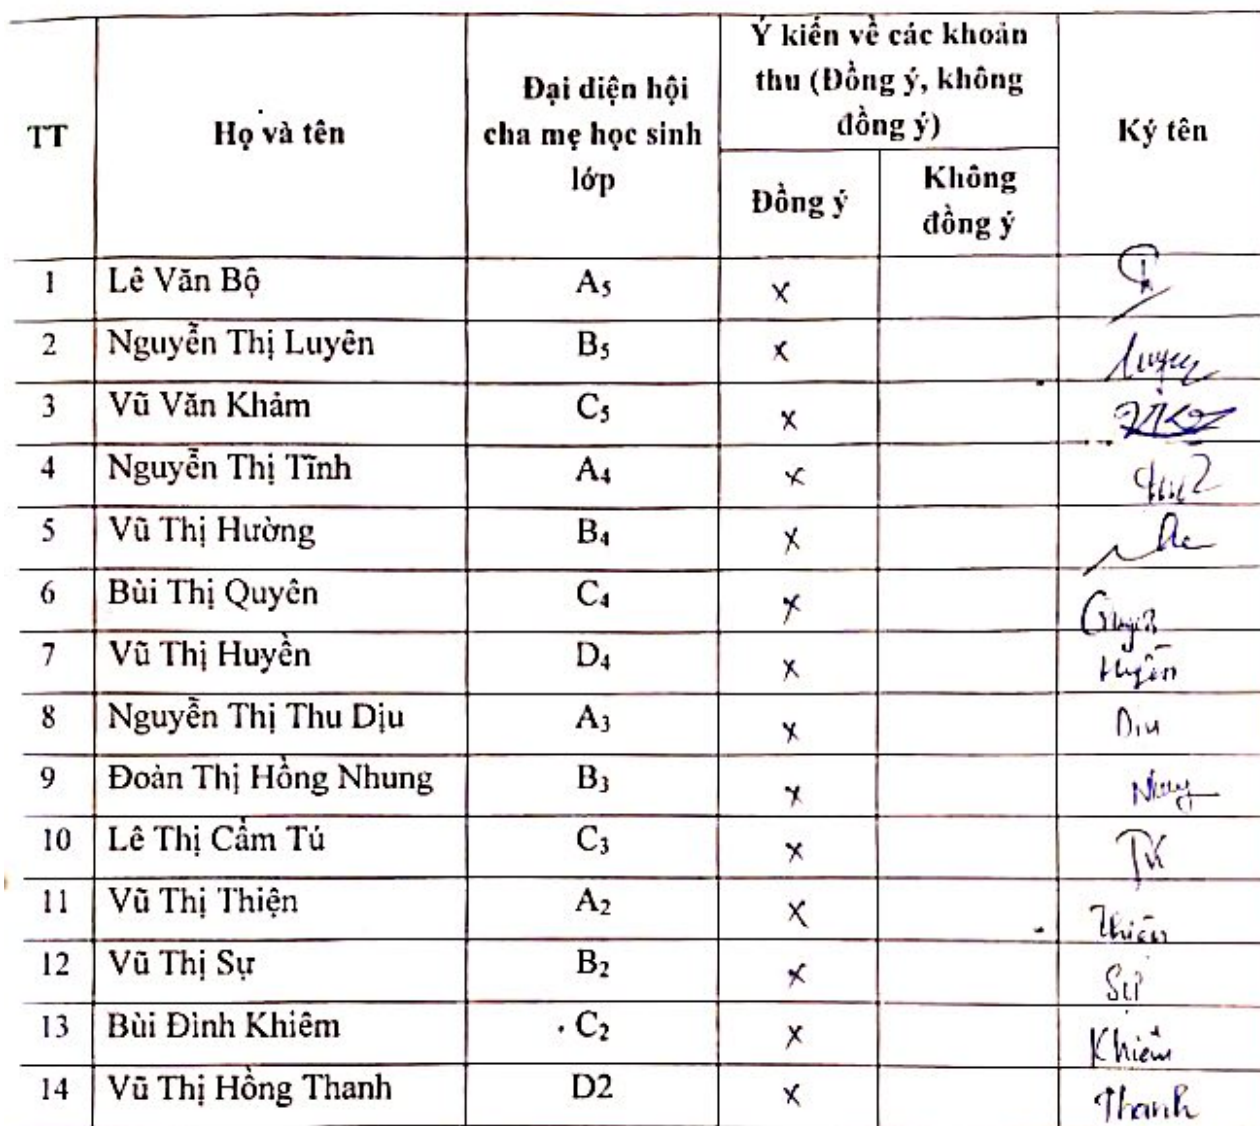 TT Họ và tên Đại diện hội cha mẹ học sinh lớp Ý kiến về các khoản thu (Đồng ý, không đồng ý) Ký tên
Đồng ý Không đồng ý
1 Lê Văn Bộ A₅ x
2 Nguyễn Thị Luyên B₅ x Luyen
3 Vũ Văn Khảm C₅ x
4 Nguyễn Thị Tĩnh A₄ x
5 Vũ Thị Hường B₄ x
6 Bùi Thị Quyên C₄ x Quyên
7 Vũ Thị Huyền D₄ x Huyền
8 Nguyễn Thị Thu Dịu A₃ x Dịu
9 Đoàn Thị Hồng Nhung B₃ x Nhung
10 Lê Thị Cẩm Tú C₃ x Tú
11 Vũ Thị Thiện A₂ x Thiện
12 Vũ Thị Sự B₂ x Sự
13 Bùi Đình Khiêm C₂ x Khiêm
14 Vũ Thị Hồng Thanh D2 x Thanh